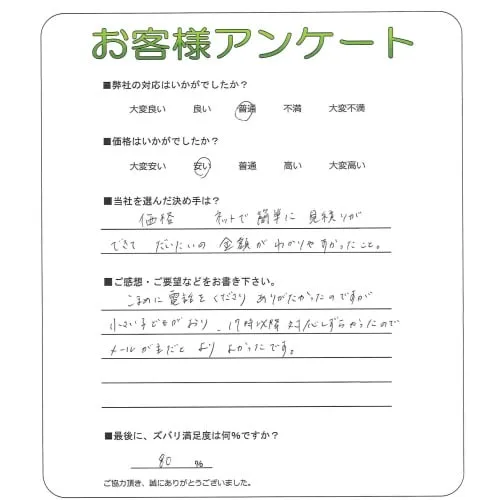 お客様アンケート
■弊社の対応はいかがでしたか？
大変良い 良い 普通 不満 大変不満
■価格はいかがでしたか？
大変安い 安い 普通 高い 大変高い
■当社を選んだ決め手は？
価格 ネットで簡単に見積りが
できて だいたいの金額がわかりやすかったこと。
■ご感想・ご要望などをお書き下さい。
こまめに電話をくださり ありがたかったのですが
小さい子どもがおり、17時以降対応しずらかったので
メールが主だと よりよかったです。
■最後に、ズバリ満足度は何%ですか？
80 %
ご協力頂き、誠にありがとうございました。